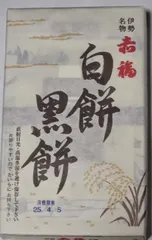 伊勢
名物
赤福
白餅
黒餅
消費期限
25. 4. 5